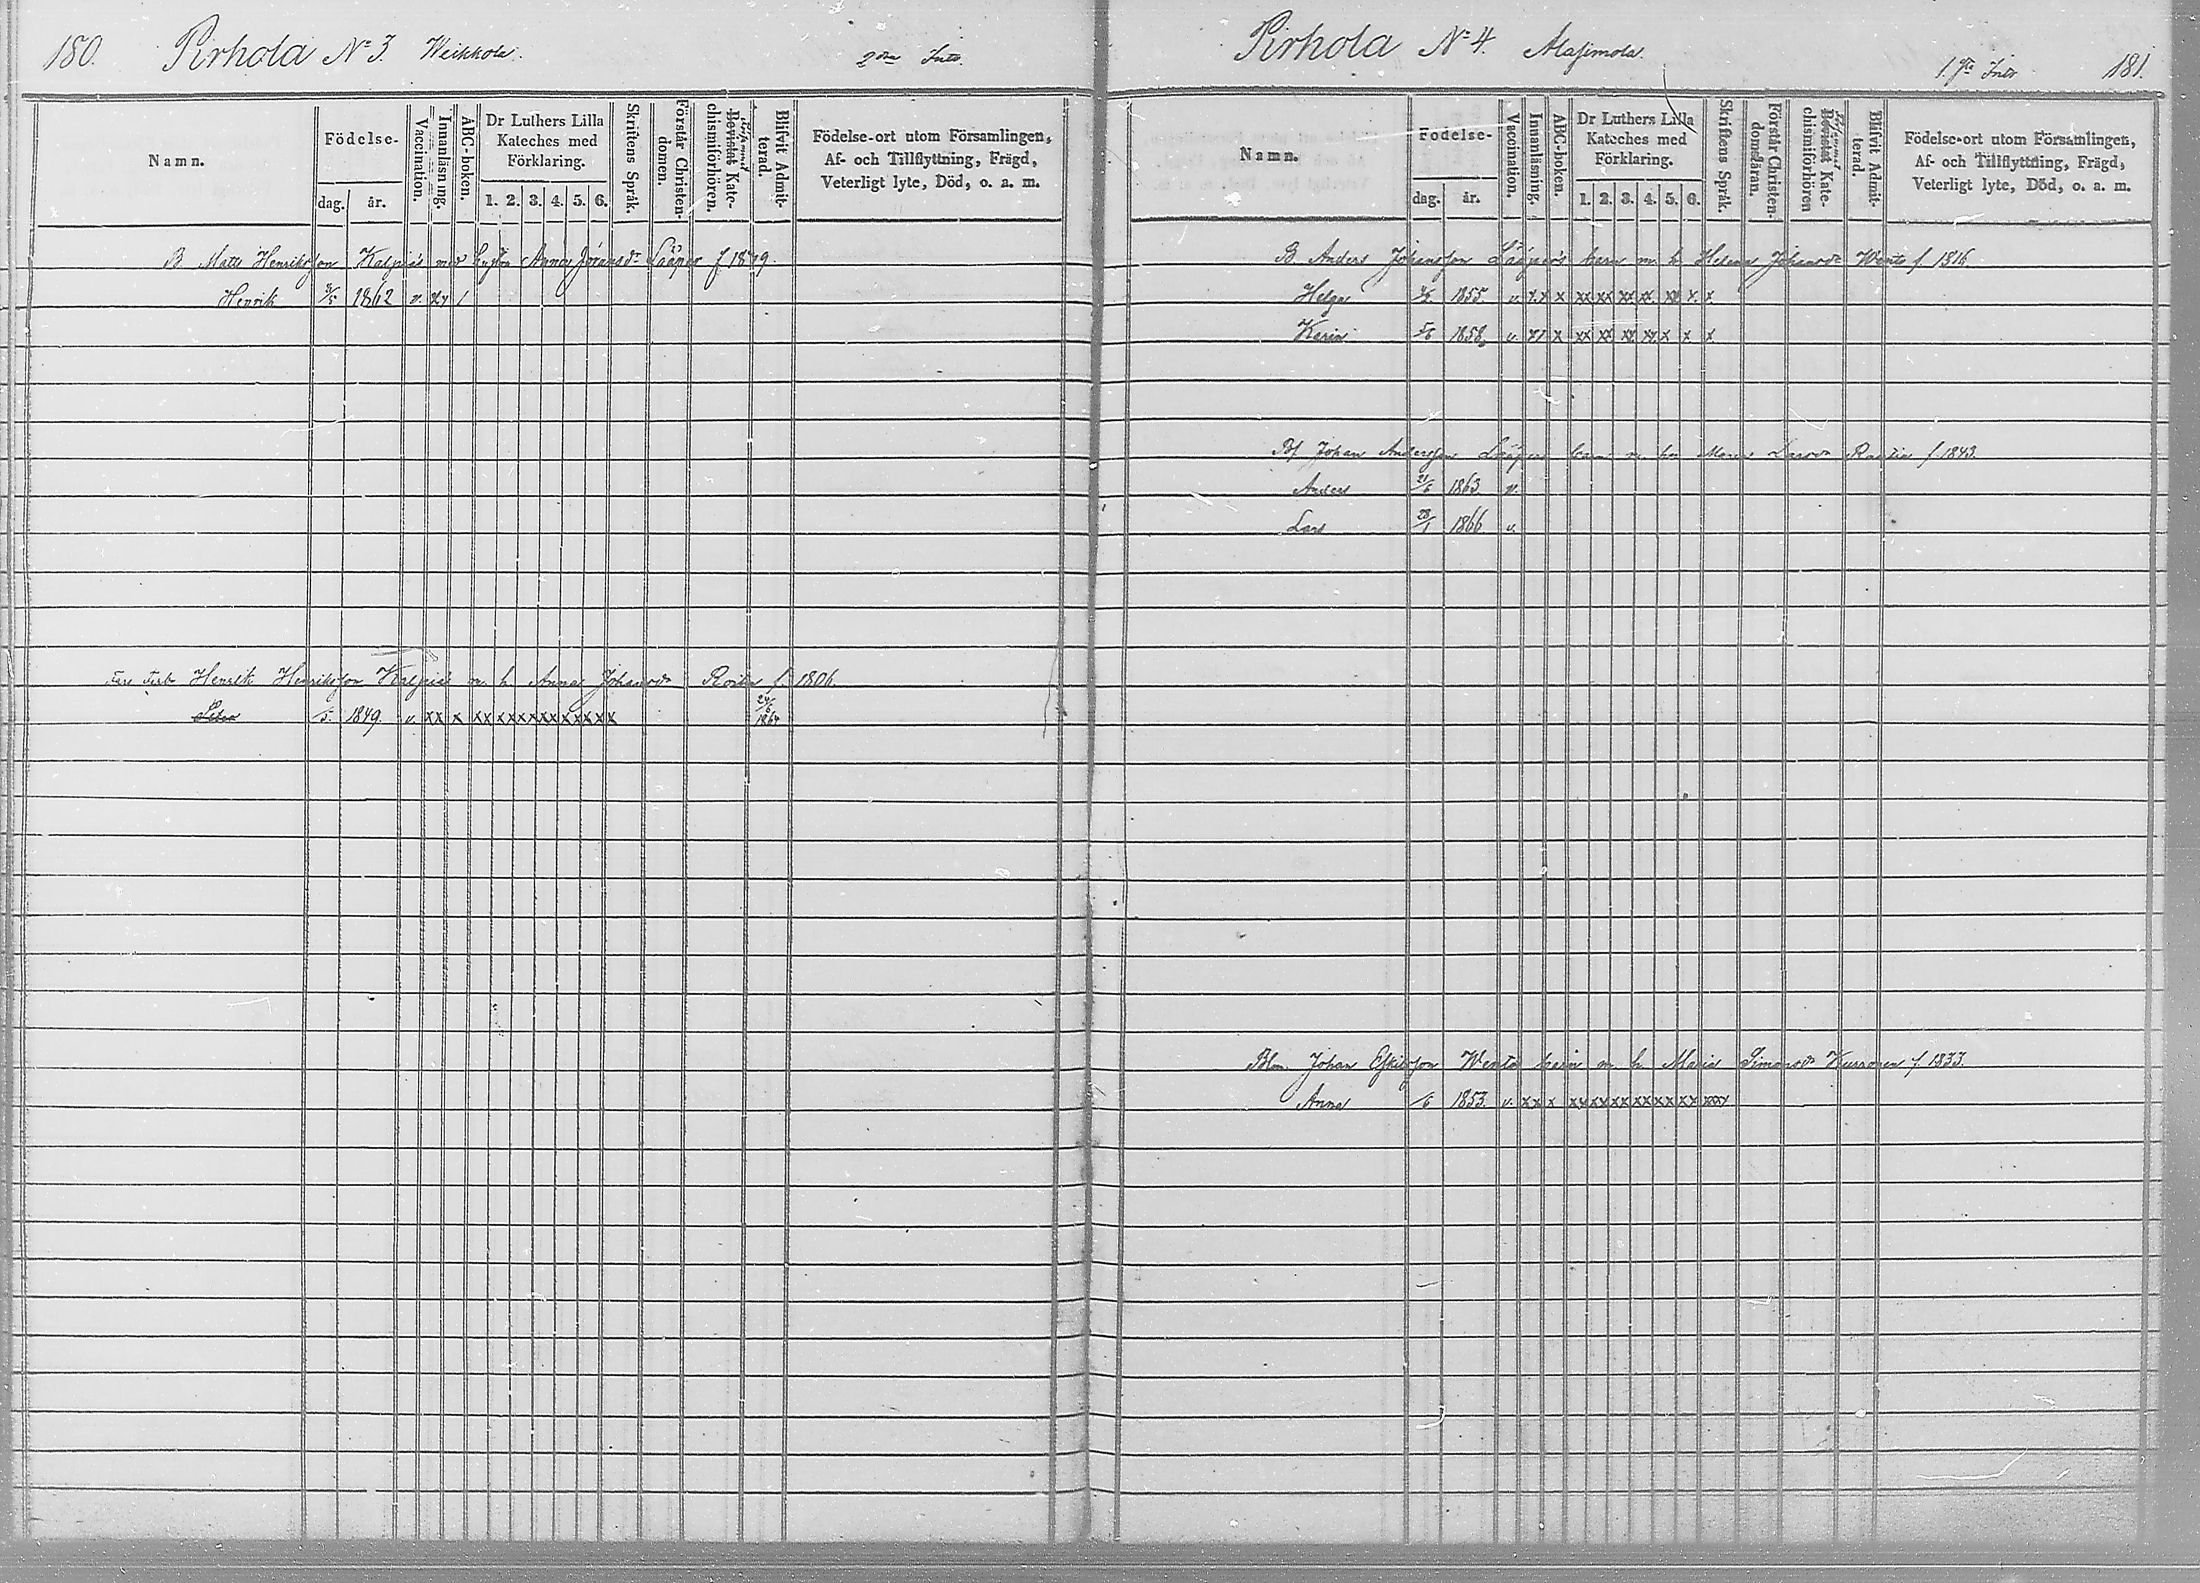 180. Pirhola No 3. Weikkola. 2dra Intr.
Namn.
Födelse-
dag. år.
Vaccination.
Innanläsning.
ABC-boken.
Dr Luthers Lilla Kateches med Förklaring.
1. 2. 3. 4. 5. 6.
Skriftens Språk.
Förstår Christendomen.
Bevistat Katechismiförhören.
Blifvit Admitterad.
Födelse-ort utom Församlingen,
Af- och Tillflyttning, Frägd,
Veterligt lyte, Död, o. a. m.
B. Matts Henriksson Kalpios med hustru Anna Jöransdr Lääper f. 1839.
Henrik 3/5 1862 v. xx /
Henrik Henriksson Kalpios m. h. Anna Johansdr f. 1806.
5. 1849. v. xx x xx xx xx xx xx xx x 24/6 1867
Pirhola No 4. Alasimola. 1sta Intr 181.
Namn.
Födelse-
dag. år.
Vaccination.
Innanläsning.
ABC-boken.
Dr Luthers Lilla Kateches med Förklaring.
1. 2. 3. 4. 5. 6.
Skriftens Språk.
Förstår Christendomsläran.
Bevistat Katechismiförhören
Blifvit Admitterad.
Födelse-ort utom Församlingen,
Af- och Tillflyttning, Frägd,
Veterligt lyte, Död, o. a. m.
B. Anders Johansson Lääpers barn m. h. Helena Johansdr Wento f. 1816
Helga 1855. v. xx x xx xx xx xx. xx x. x
Karin 5/6 1858. v. xx x xx xx xx xx. x x x
Bf. Johan Andersson Lääpers barn m. hu Maria Larsdr f. 1843.
Anders 21/6 1863. v.
Lars 28/1 1866. v.
Blm. Johan Eskilsson Wento barn m. h. Maria Simonsdr Kurronen f. 1833.
Anna /6 1853. v. xx x xx xx xx xx xx xx xxx